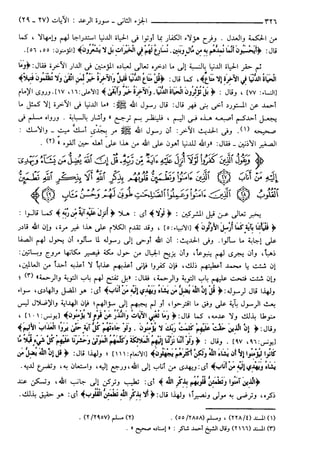 ٣٢٦ الجزء الثاني ـ سورة الرعد : الآيات (٢٧ ـ ٢٩)
من الحكمة والعدل . وفرح هؤلاء الكفار بما أوتوا في الحياة الدنيا استدراجا لهم وإمهالا ، كما
قال : ﴿أَيَحْسَبُونَ أَنَّمَا نُمِدُّهُم بِهِ مِن مَّالٍ وَبَنِينَ . نُسَارِعُ لَهُمْ فِي الْخَيْرَاتِ بَل لَّا يَشْعُرُونَ﴾ [المؤمنون : ٥٥، ٥٦].
ثم حقر الحياة الدنيا بالنسبة إلى ما ادخره تعالى لعباده المؤمنين في الدار الآخرة فقال : ﴿وَمَا
الْحَيَاةُ الدُّنْيَا فِي الْآخِرَةِ إِلَّا مَتَاعٌ﴾ ، كما قال : ﴿قُلْ مَتَاعُ الدُّنْيَا قَلِيلٌ وَالْآخِرَةُ خَيْرٌ لِّمَنِ اتَّقَىٰ وَلَا تُظْلَمُونَ فَتِيلًا﴾
[النساء : ٧٧] ، وقال : ﴿بَلْ تُؤْثِرُونَ الْحَيَاةَ الدُّنْيَا . وَالْآخِرَةُ خَيْرٌ وَأَبْقَىٰ﴾ [الأعلى : ١٦، ١٧]. وروى الإمام
أحمد عن المستورد أخي بني فهر قال : قال رسول الله ﷺ : «ما الدنيا في الآخرة إلا كمثل ما
يجعل أحدكم أصبعه هذه في اليم ، فلينظر بم ترجع » وأشار بالسبابة . ورواه مسلم في
صحيحه (١). وفي الحديث الآخر : أن رسول الله ﷺ مر بجدي أسك ميت ـ والأسك :
الصغير الأذنين ـ فقال : «والله للدنيا أهون على الله من هذا على أهله حين ألقوه » (٢) .
﴿وَيَقُولُ الَّذِينَ كَفَرُوا لَوْلَا أُنزِلَ عَلَيْهِ آيَةٌ مِّن رَّبِّهِ قُلْ إِنَّ اللَّهَ يُضِلُّ مَن يَشَاءُ وَيَهْدِي
إِلَيْهِ مَنْ أَنَابَ ٢٧ الَّذِينَ آمَنُوا وَتَطْمَئِنُّ قُلُوبُهُم بِذِكْرِ اللَّهِ أَلَا بِذِكْرِ اللَّهِ تَطْمَئِنُّ
الْقُلُوبُ ٢٨ الَّذِينَ آمَنُوا وَعَمِلُوا الصَّالِحَاتِ طُوبَىٰ لَهُمْ وَحُسْنُ مَآبٍ ٢٩﴾
يخبر تعالى عن قيل المشركين : ﴿لَوْلَا﴾ أي : هلا ﴿أُنزِلَ عَلَيْهِ آيَةٌ مِّن رَّبِّهِ﴾ كما قالوا :
﴿فَلْيَأْتِنَا بِآيَةٍ كَمَا أُرْسِلَ الْأَوَّلُونَ﴾ [الأنبياء : ٥] ، وقد تقدم الكلام على هذا غير مرة، وإن الله قادر
على إجابة ما سألوا. وفي الحديث : أن الله أوحى إلى رسوله لما سألوه أن يحول لهم الصفا
ذهبا، وأن يجري لهم ينبوعا، وأن يزيح الجبال من حول مكة فيصير مكانها مروج وبساتين :
إن شئت يا محمد أعطيتهم ذلك، فإن كفروا فإني أعذبهم عذابا لا أعذبه أحدا من العالمين،
وإن شئت فتحت عليهم باب التوبة والرحمة، فقال : «بل تفتح لهم باب التوبة والرحمة» (٣)
ولهذا قال لرسوله : ﴿قُلْ إِنَّ اللَّهَ يُضِلُّ مَن يَشَاءُ وَيَهْدِي إِلَيْهِ مَنْ أَنَابَ﴾ أي : هو المضل والهادي، سواء
بعث الرسول بآية على وفق ما اقترحوا، أو لم يجبهم إلى سؤالهم؛ فإن الهداية والإضلال ليس
منوطا بذلك ولا عدمه، كما قال : ﴿وَمَا تُغْنِي الْآيَاتُ وَالنُّذُرُ عَن قَوْمٍ لَّا يُؤْمِنُونَ﴾ [يونس : ١٠١] ،
وقال : ﴿إِنَّ الَّذِينَ حَقَّتْ عَلَيْهِمْ كَلِمَتُ رَبِّكَ لَا يُؤْمِنُونَ . وَلَوْ جَاءَتْهُمْ كُلُّ آيَةٍ حَتَّىٰ يَرَوُا الْعَذَابَ الْأَلِيمَ﴾
[يونس : ٩٦، ٩٧] . وقال : ﴿وَلَوْ أَنَّنَا نَزَّلْنَا إِلَيْهِمُ الْمَلَائِكَةَ وَكَلَّمَهُمُ الْمَوْتَىٰ وَحَشَرْنَا عَلَيْهِمْ كُلَّ شَيْءٍ قُبُلًا مَّا
كَانُوا لِيُؤْمِنُوا إِلَّا أَن يَشَاءَ اللَّهُ وَلَٰكِنَّ أَكْثَرَهُمْ يَجْهَلُونَ﴾ [الأنعام : ١١١] ؛ ولهذا قال : ﴿قُلْ إِنَّ اللَّهَ يُضِلُّ مَن
يَشَاءُ وَيَهْدِي إِلَيْهِ مَنْ أَنَابَ﴾ أي : ويهدي من أناب إلى الله، ورجع إليه، واستعان به، وتضرع لديه.
﴿الَّذِينَ آمَنُوا وَتَطْمَئِنُّ قُلُوبُهُم بِذِكْرِ اللَّهِ﴾ أي : تطيب وتركن إلى جانب الله، وتسكن عند
ذكره، وترضى به مولى ونصيرا؛ ولهذا قال : ﴿أَلَا بِذِكْرِ اللَّهِ تَطْمَئِنُّ الْقُلُوبُ﴾ أي : هو حقيق بذلك.
(١) المسند (٢٢٨/٤) ، ومسلم (٥٥/٢٨٥٨). (٢) مسلم (٢/٢٩٥٧) .
(٣) المسند (٢١٦٦) وقال الشيخ أحمد شاكر : « إسناده صحيح » .